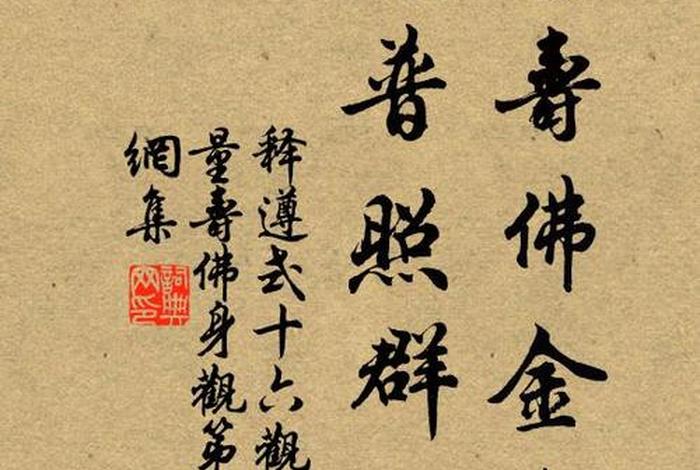 壽佛金
普照群
释遵式十六觀
量壽佛身觀第
網集
詞典網印